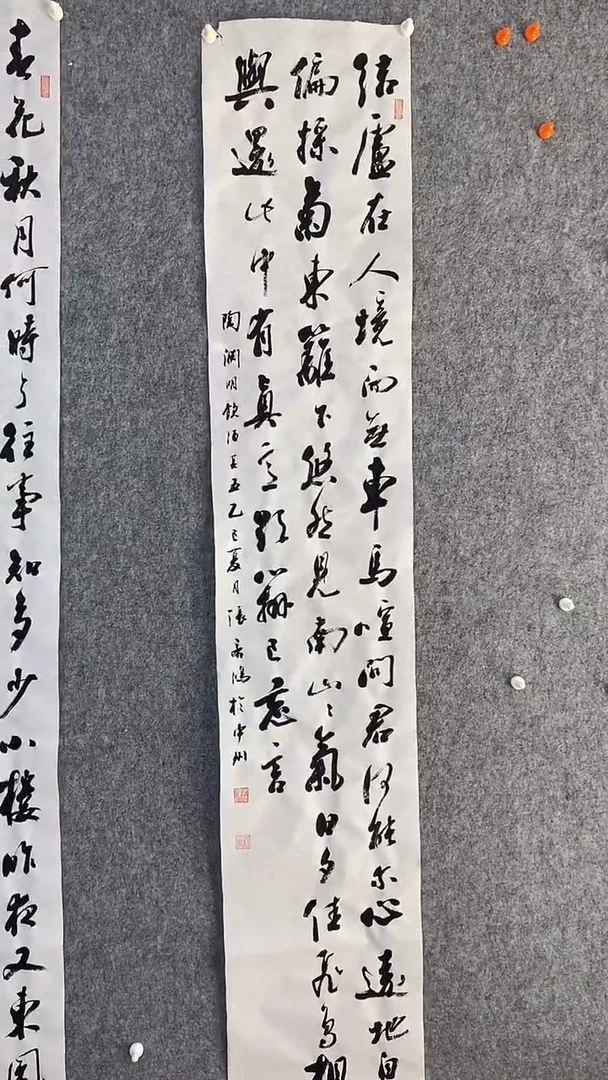 結廬在人境而無車馬喧問君何能尔心遠地自
偏採菊東籬下悠然見南山〻氣日夕佳飛鳥相
與還此中有真意欲辯已忘言
陶淵明飲酒其五乙巳夏月張鴻於中州
春花秋月何時了往事知多少小樓昨夜又東風